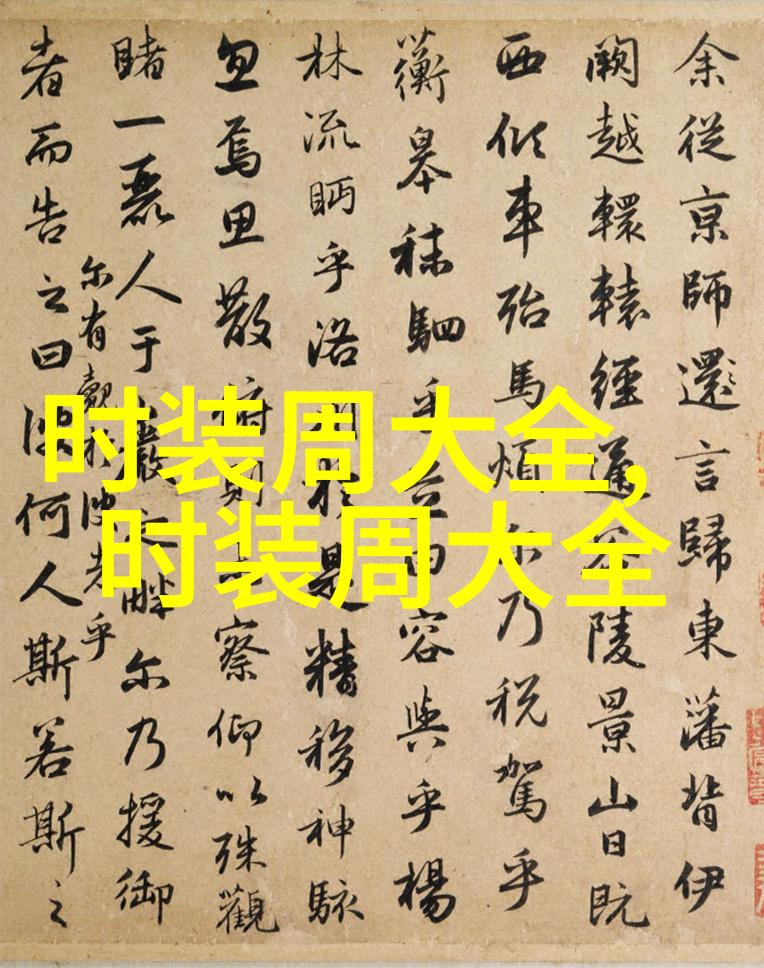 余從京師還言歸東藩背伊
闕越轘轅經通谷陵景山日既
西傾車殆馬煩尔乃税駕乎
蘅皋秣駟乎芝田容與乎楊
林流眄乎洛川於是精移神駭
忽焉思散俯則未察仰以殊觀
睹一麗人于巖之畔尔乃援御
者而告之曰
尔有覿於彼者乎
彼何人斯若斯之
时装周大全,
时装周大全